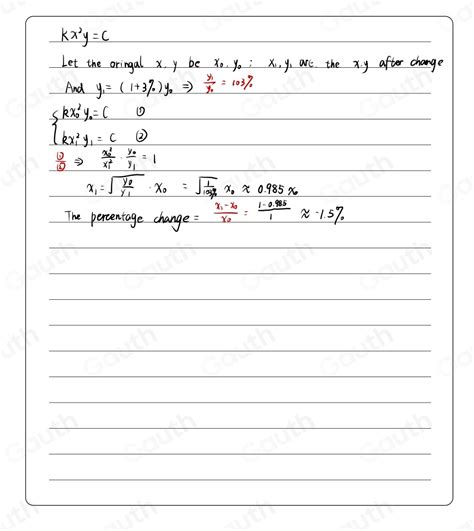 kx²y = C
Let the oringal x, y be x₀, y₀ ; x₁, y₁ are the x.y after change
And y₁ = (1+3%) y₀ ⇒ y₁/y₀ = 103%
{ kx₀²y₀ = C ①
kx₁²y₁ = C ②
①/② ⇒ x₀²/x₁² · y₀/y₁ = 1
x₁ = √(y₀/y₁) · x₀ = √(1/103%) x₀ ≈ 0.985 x₀
The percentage change = (x₁-x₀)/x₀ = (1-0.985)/1 ≈ -1.5%
Gauth